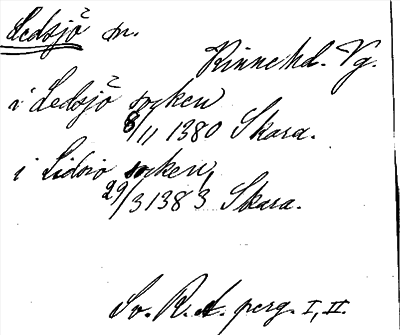 Ledsjö sn.
Kinnehd. Vg.
i Ledsjö socken
8/11 1380 Skara.
i Lidsio socken
29/3 1383 Skara.
Sv. R. A. perg. I, II.